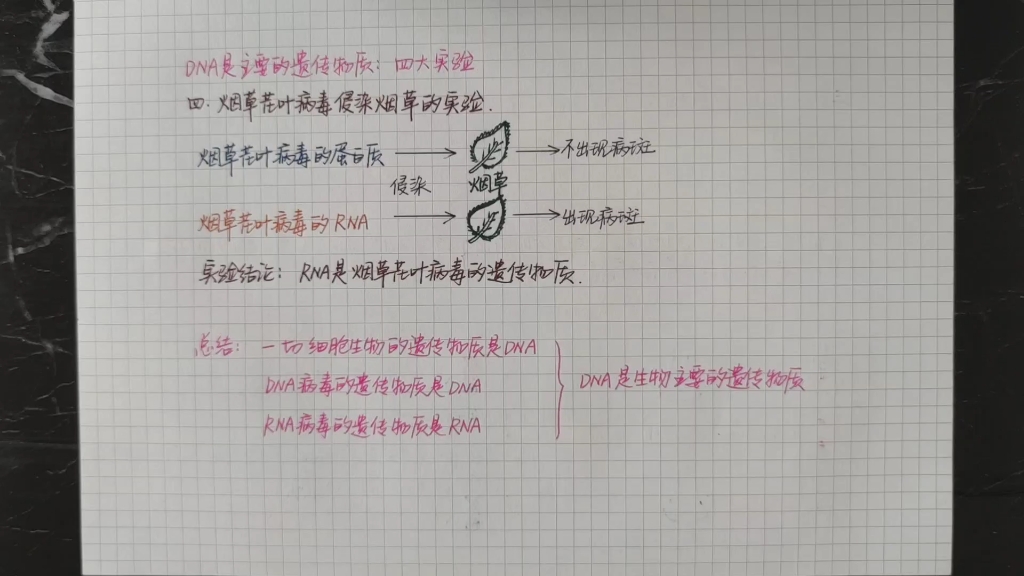 DNA是主要的遗传物质：四大实验
四.烟草花叶病毒侵染烟草的实验.
烟草花叶病毒的蛋白质 不出现病斑
侵染 烟草
烟草花叶病毒的RNA 出现病斑
实验结论：RNA是烟草花叶病毒的遗传物质.
总结：一切细胞生物的遗传物质是DNA
DNA病毒的遗传物质是DNA
RNA病毒的遗传物质是RNA
DNA是生物主要的遗传物质